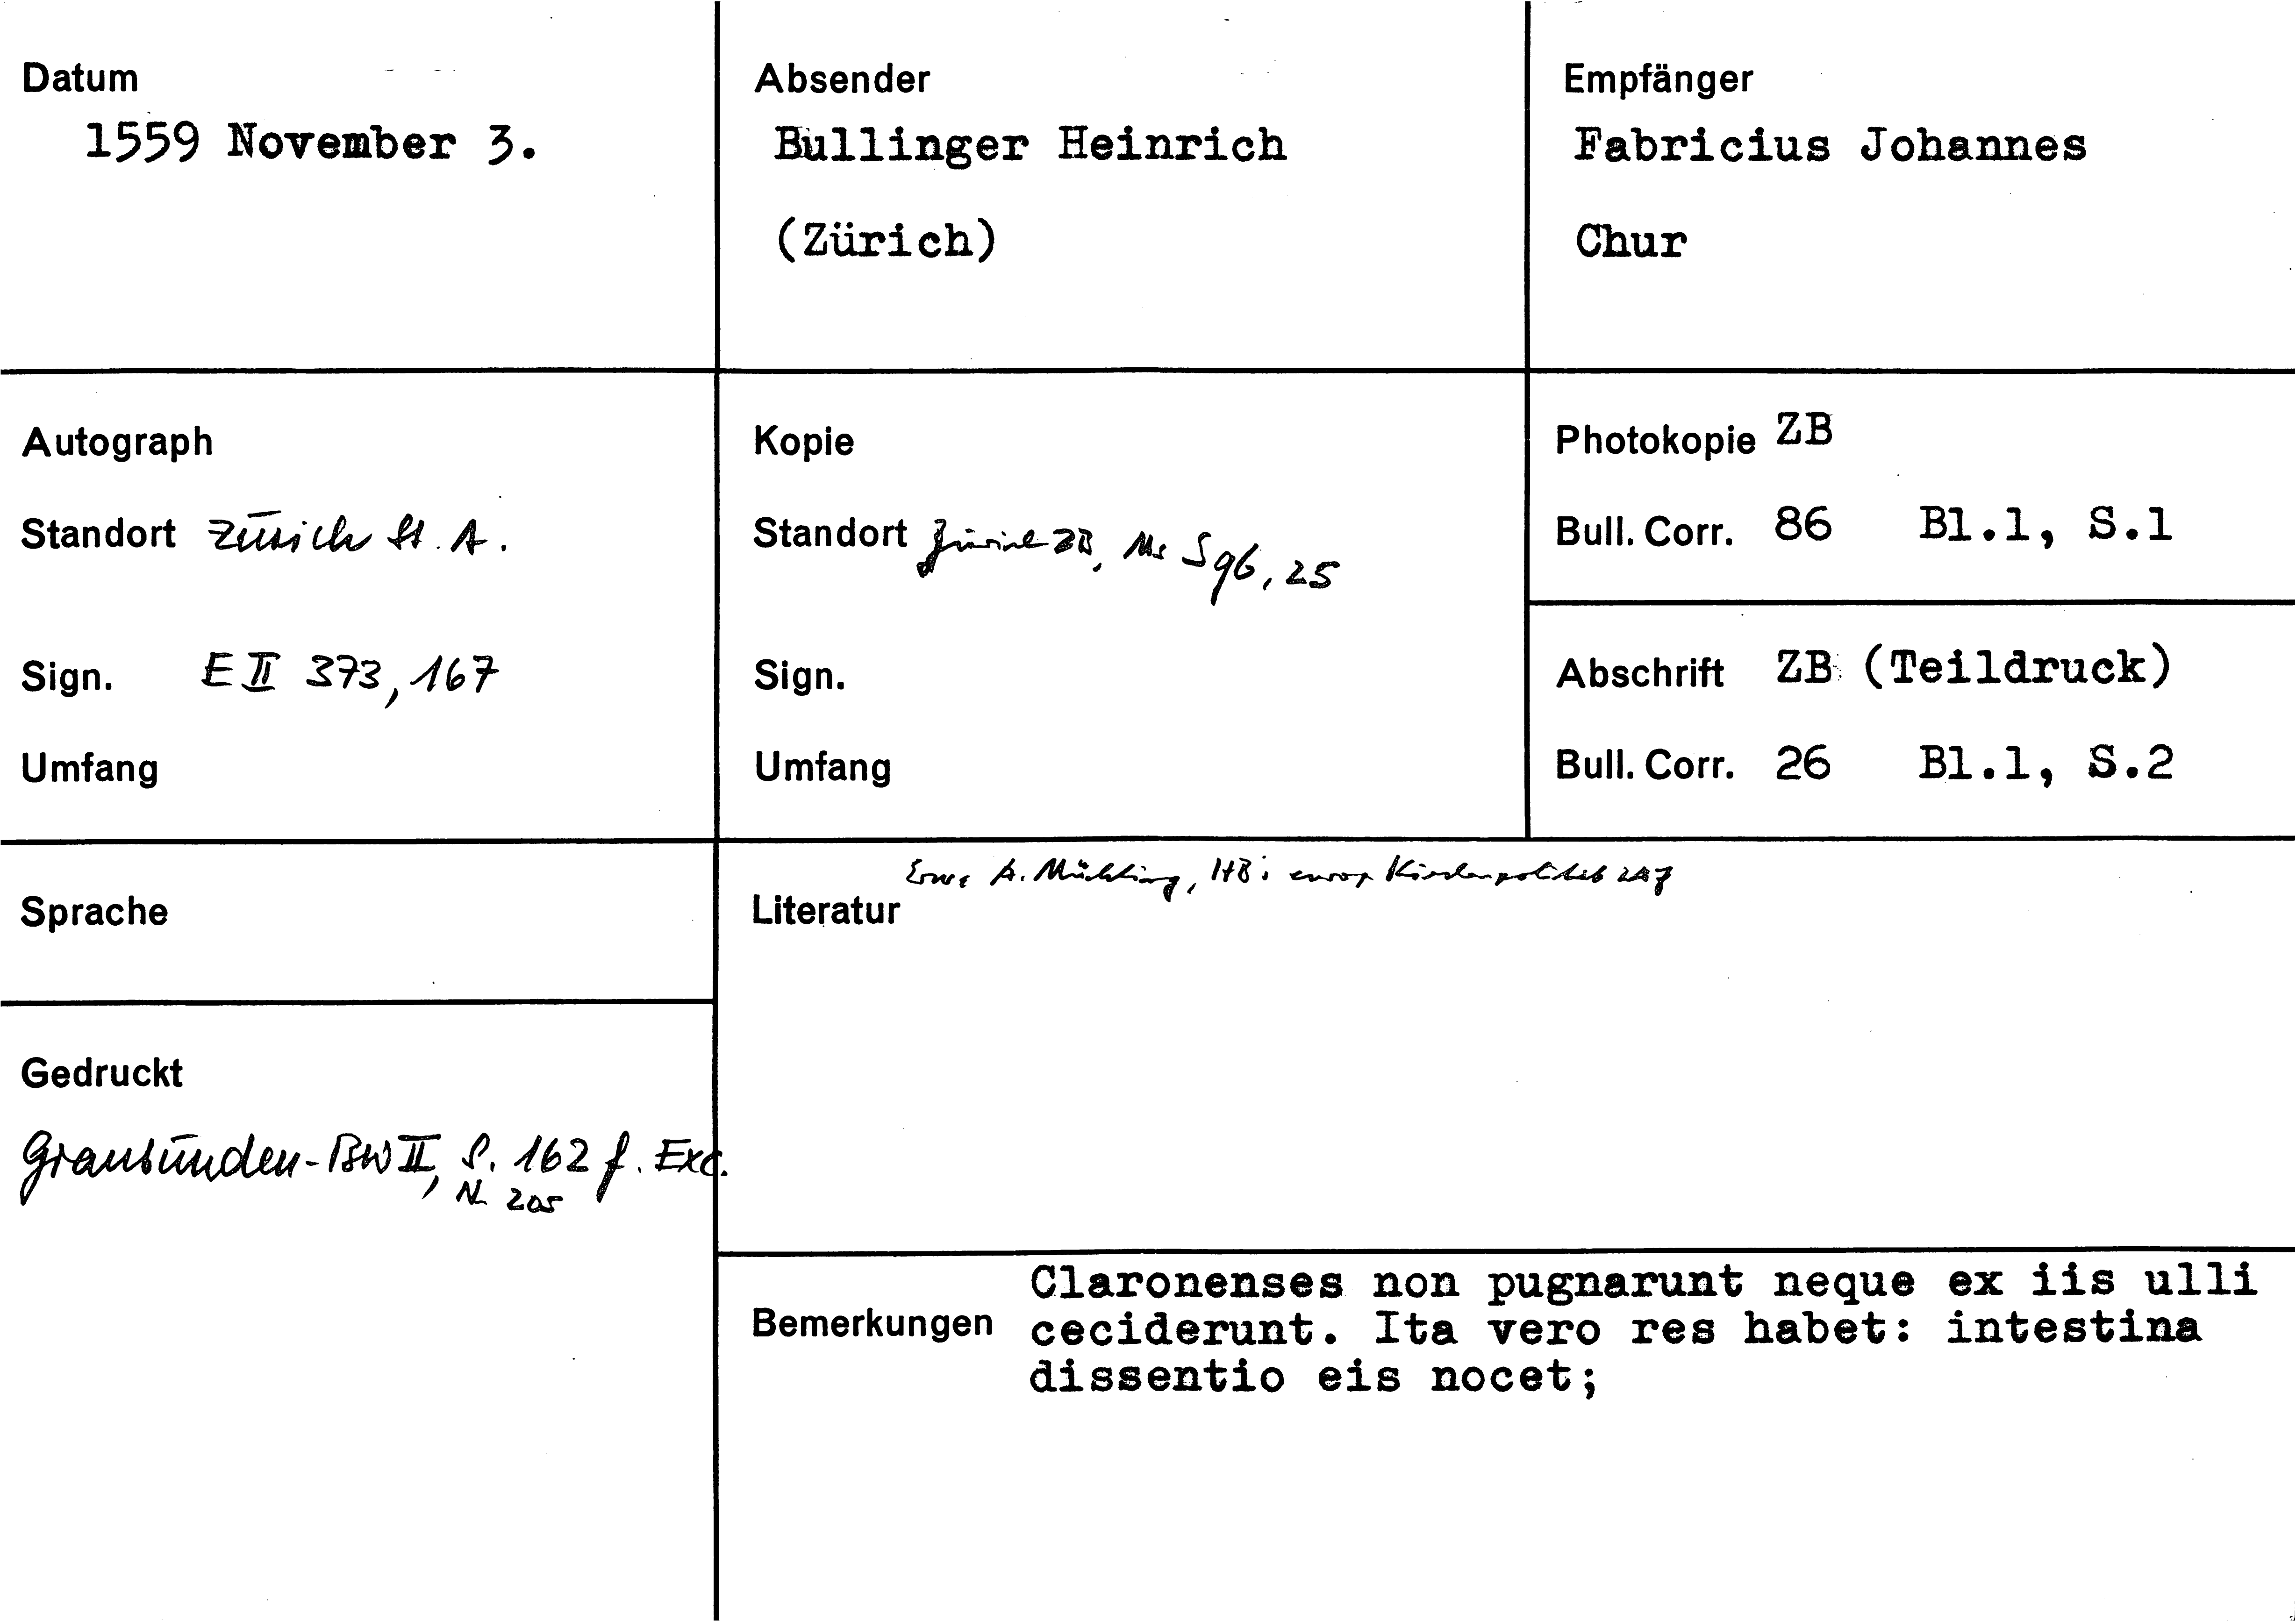 Datum
1559 November 3.
Absender
Bullinger Heinrich
(Zürich)
Empfänger
Fabricius Johannes
Chur
Autograph
Standort Zürich St. A.
Sign. E II 373, 167
Umfang
Kopie
Standort Zürich ZB, Ms S 96, 25
Sign.
Umfang
Photokopie ZB
Bull. Corr. 86 Bl.1, S.1
Abschrift ZB (Teildruck)
Bull. Corr. 26 Bl.1, S.2
Sprache
Gedruckt
Graubünden-BW II, S. 162 f. Exc.
Nr 205
A. Mühling, HBs europ Kirchenpolitik
Literatur
Bemerkungen
Claronenses non pugnarunt neque ex iis ulli
ceciderunt. Ita vero res habet: intestina
dissentio eis nocet;